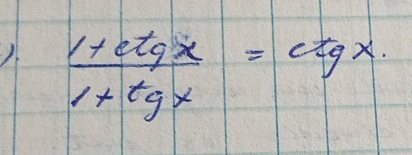 ). (1+ctgx)/(1+tgx) = ctgx.